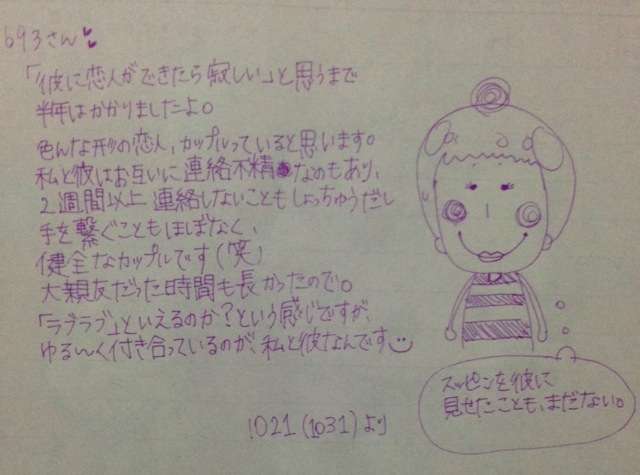 693さん
「彼に恋人ができたら寂しい」と思うまで
半年はかかりましたよ。
色んな形の恋人、カップルっていると思います。
私と彼はお互いに連絡不精なのもあり、
2週間以上連絡しないこともしょっちゅうだし
手を繋ぐこともほぼなく、
健全なカップルです(笑)
大親友だった時間も長かったので。
「ラブラブ」といえるのか?という感じですが、
ゆる〜く付き合っているのが、私と彼なんです
!021(1031)より
スッピンを彼に
見せたことも、まだない。